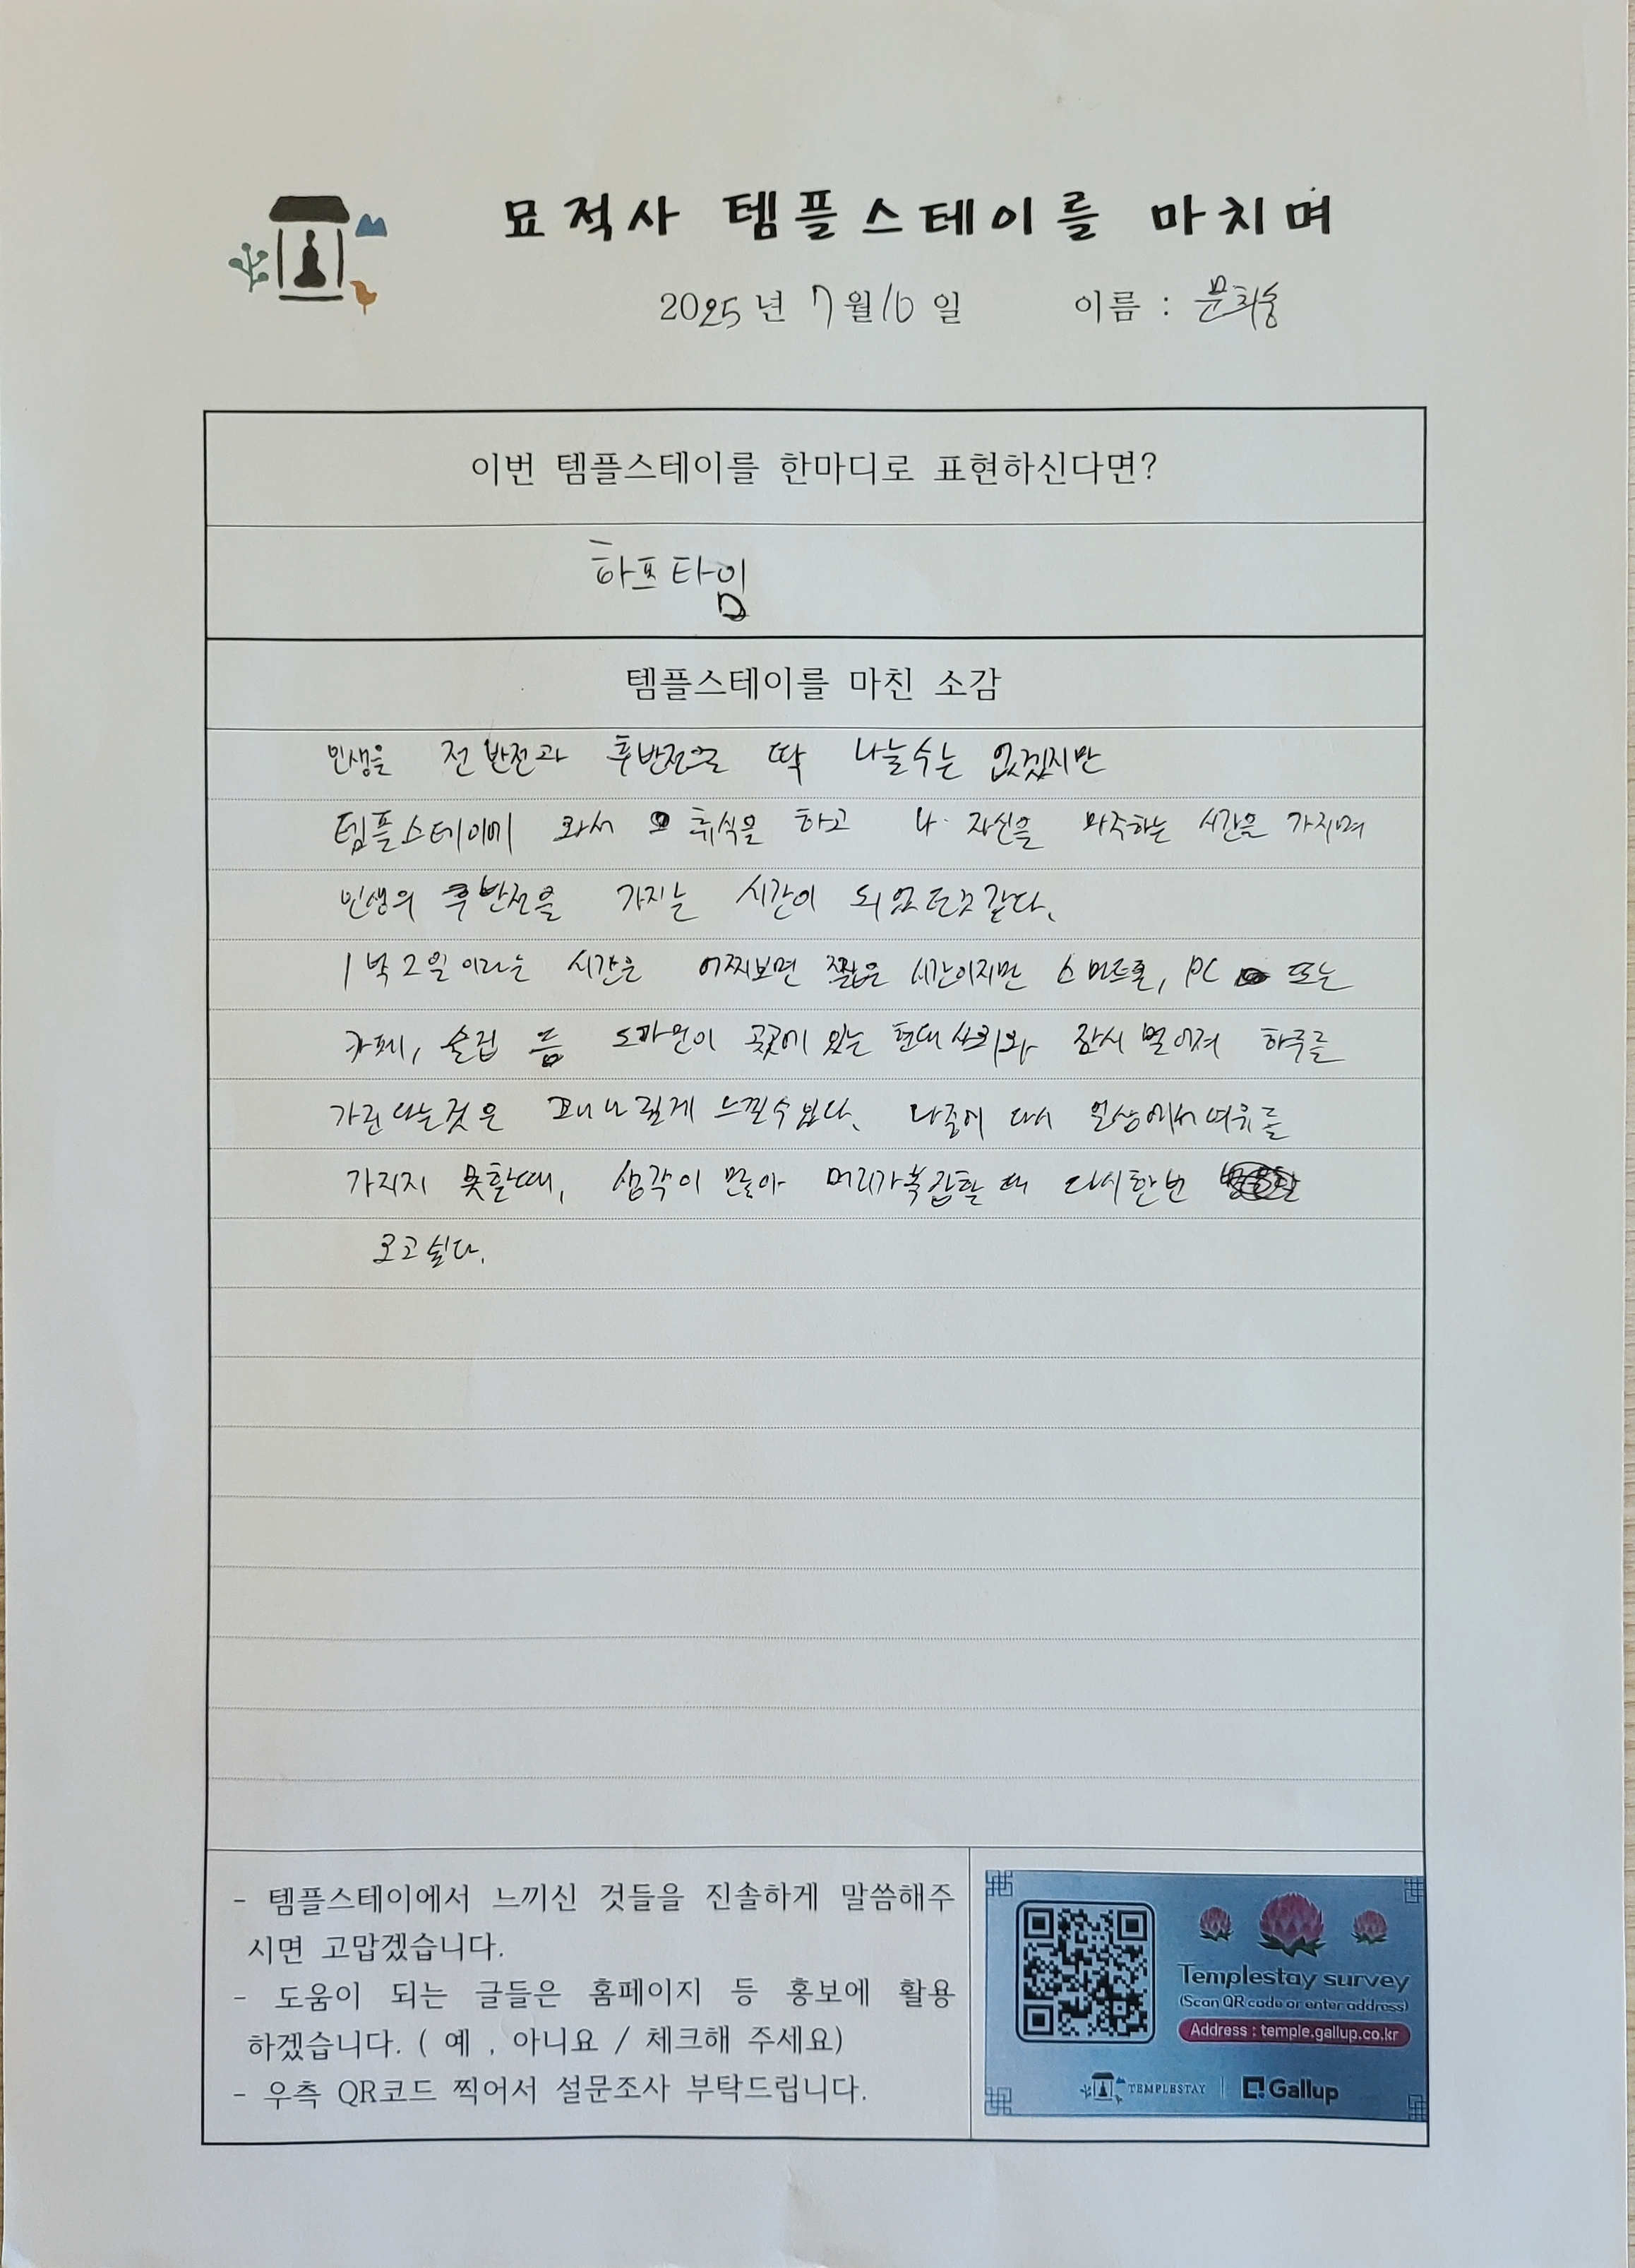 묘적사 템플스테이를 마치며
2025년 7월 10일 이름 : 문희송
이번 템플스테이를 한마디로 표현하신다면?
하프타임
템플스테이를 마친 소감
인생을 전반전과 후반전으로 딱 나눌수는 없겠지만
템플스테이에 와서 휴식을 하고 나 자신을 마주하는 시간을 가지며
인생의 후반전을 가지는 시간이 되었던것 같다.
1박2일이라는 시간은 어찌보면 짧은 시간이지만 스마트폰, PC 또는
카페, 술집 등 도파민이 곳곳에 있는 현대 사회와 잠시 멀어져 하루를
가진다는것은 꽤나 길게 느낄수 있다. 나중에 다시 일상에서 여유를
가지지 못할때, 생각이 많아 머리가 복잡할 때 다시한번
오고싶다.
- 템플스테이에서 느끼신 것들을 진솔하게 말씀해주
시면 고맙겠습니다.
- 도움이 되는 글들은 홈페이지 등 홍보에 활용
하겠습니다. ( 예 , 아니요 / 체크해 주세요)
- 우측 QR코드 찍어서 설문조사 부탁드립니다.
Templestay survey
(Scan QR code or enter address)
Address : temple.gallup.co.kr
TEMPLESTAY | Gallup